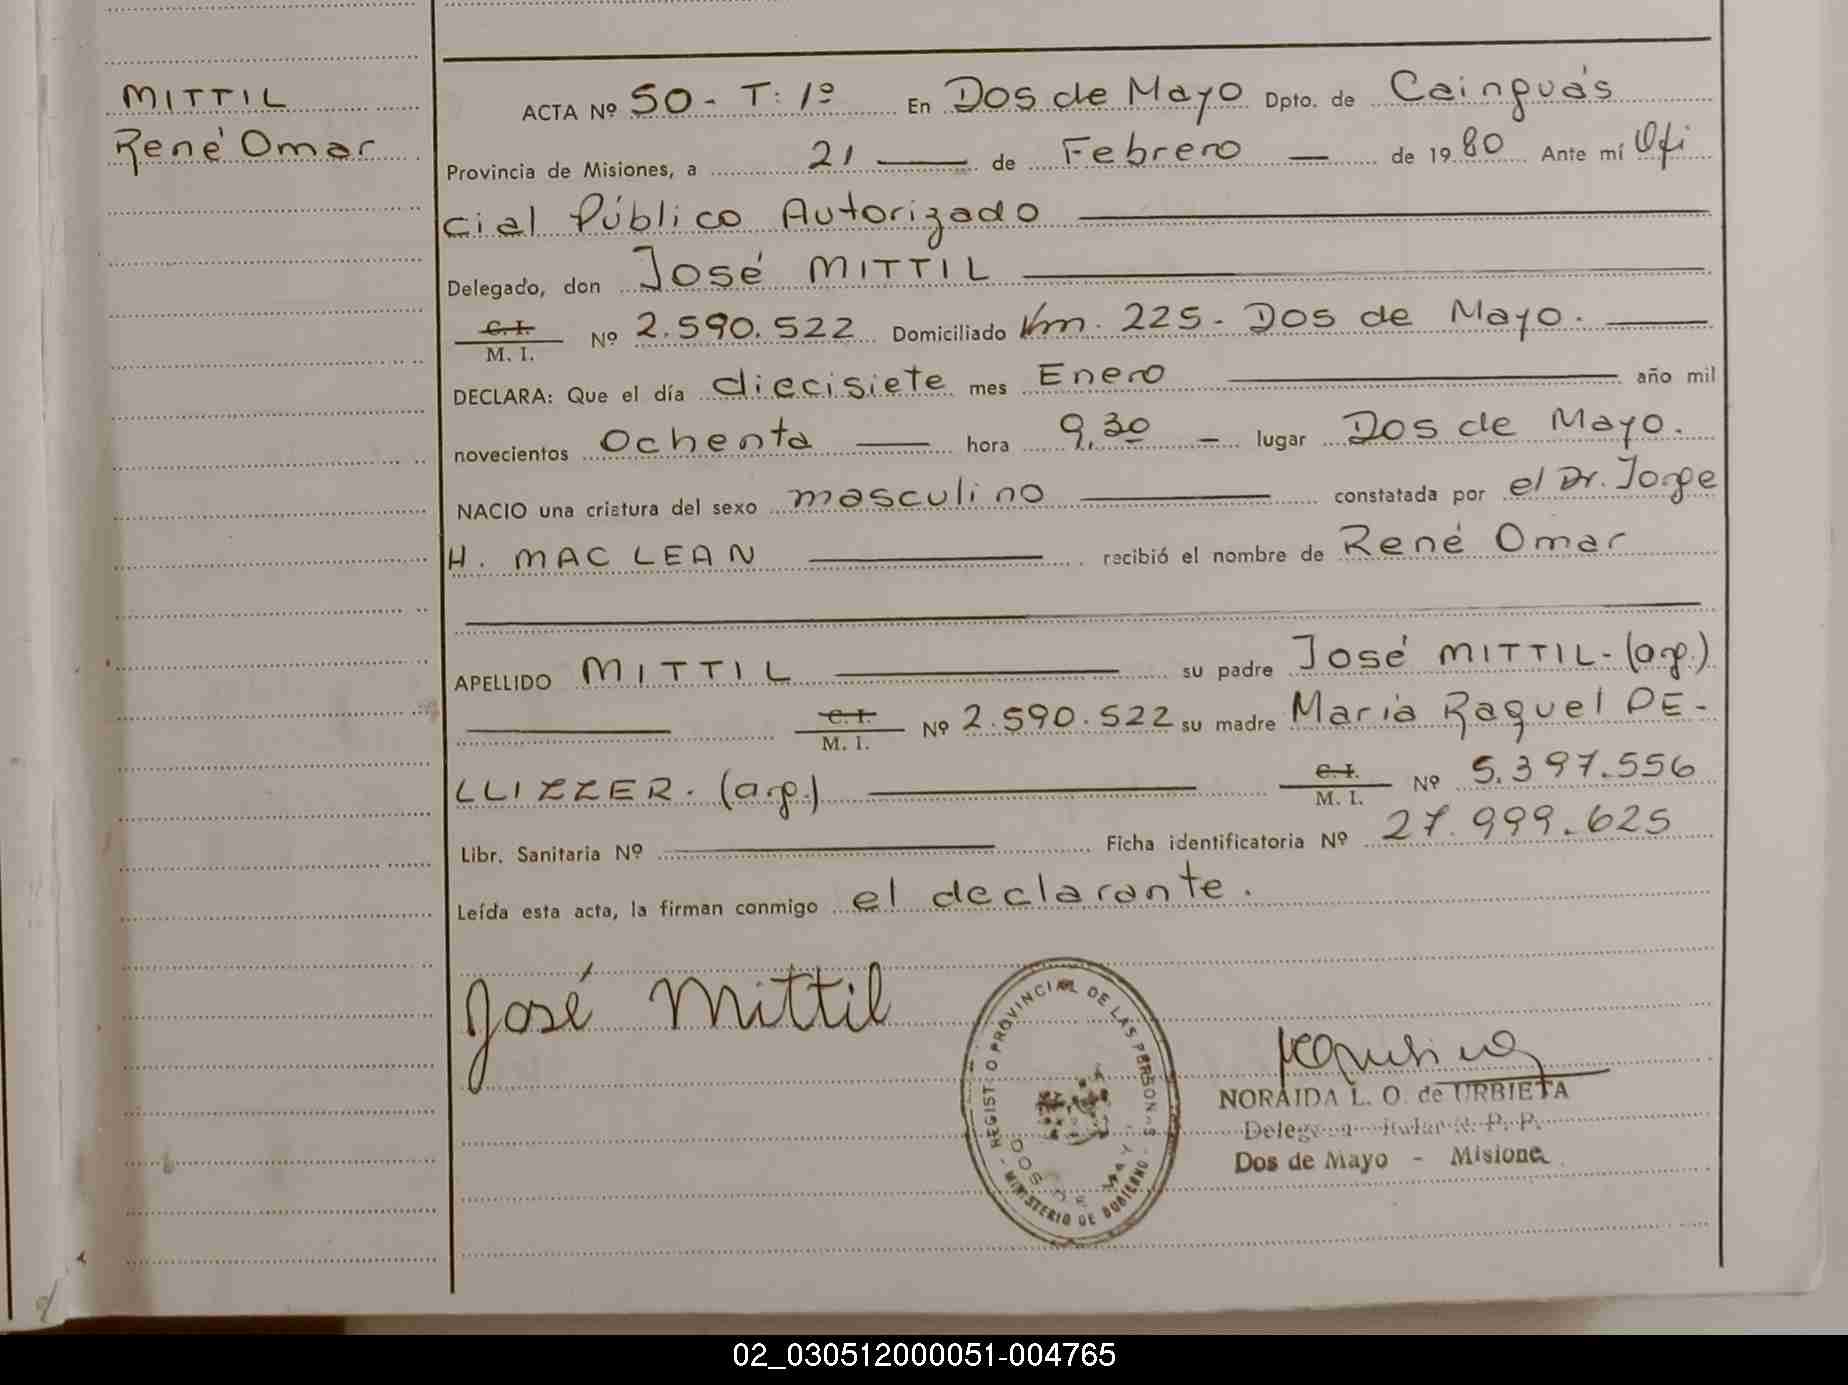 MITTIL
René Omar
ACTA Nº 50 - T: 1º En Dos de Mayo Dpto. de Cainguás
Provincia de Misiones, a 21 de Febrero de 1980 Ante mí Ofi
cial Público Autorizado
Delegado, don José MITTIL
C. I.
M. I. Nº 2.590.522 Domiciliado Km. 225 - Dos de Mayo.
DECLARA: Que el día diecisiete mes Enero año mil
novecientos Ochenta hora 9,30 lugar Dos de Mayo.
NACIO una criatura del sexo masculino constatada por el Dr. Jorge
H. MAC LEAN recibió el nombre de René Omar
APELLIDO MITTIL su padre José MITTIL - (arg.)
C. I.
M. I. Nº 2.590.522 su madre Maria Raquel DE-
LLIZZER. (arg.) C. I.
M. I. Nº 5.397.556
Libr. Sanitaria Nº Ficha identificatoria Nº 27.999.625
Leída esta acta, la firman conmigo el declarante.
José Mittil
REGISTRO PROVINCIAL DE LAS PERSONAS
MINISTERIO DE GOBIERNO
DOS DE MAYO
NORAIDA L. O. de URBIETA
Dos de Mayo - Misiones
02_030512000051-004765